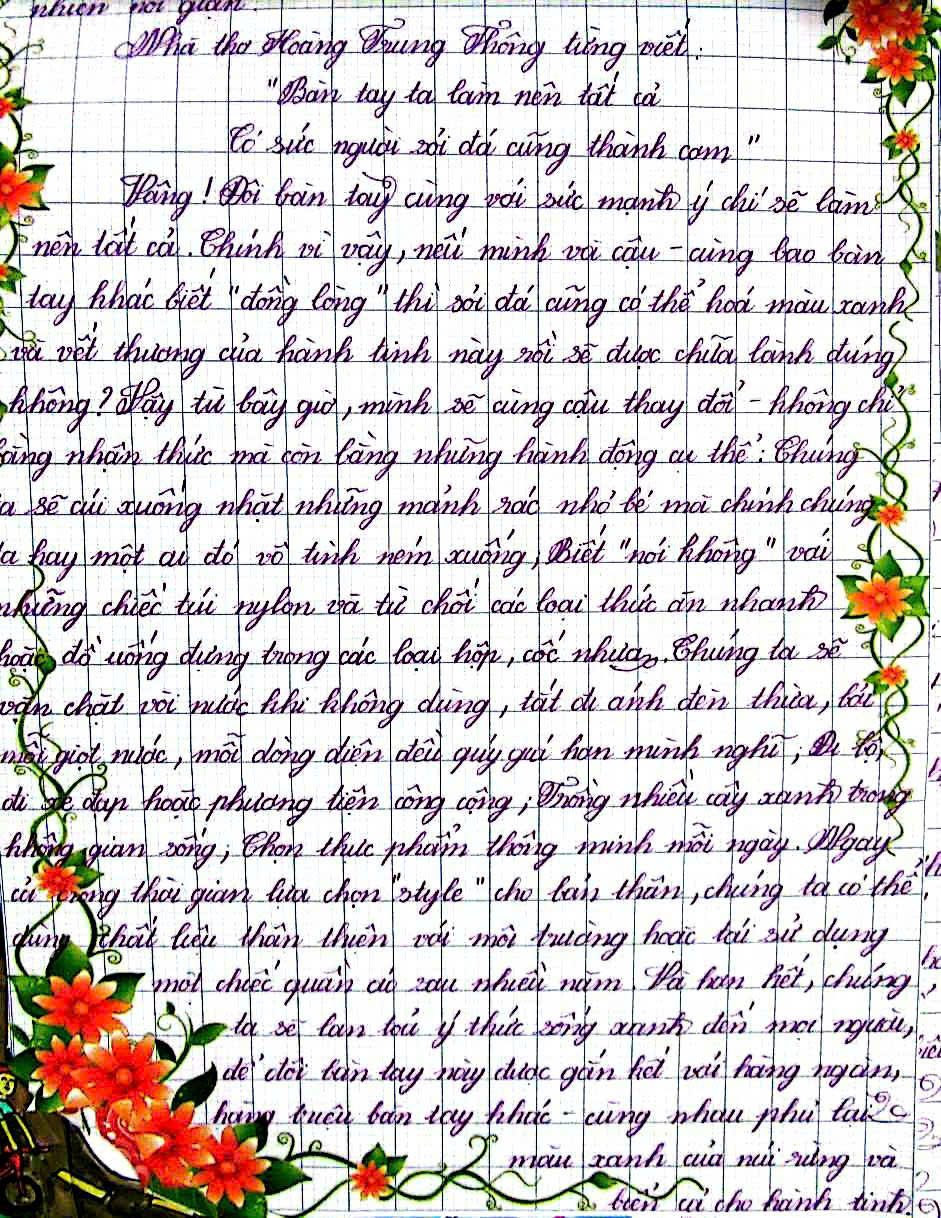 nhiên nói gian.
Nhà thơ Hoàng Trung Thông từng viết:
"Bàn tay ta làm nên tất cả
Có sức người sỏi đá cũng thành cơm"
Vâng! Đôi bàn tay cùng với sức mạnh ý chí sẽ làm
nên tất cả. Chính vì vậy, nếu mình và cậu - cùng bao bàn
tay khác biết "đồng lòng" thì sỏi đá cũng có thể hoá màu xanh
và vết thương của hành tinh này rồi sẽ được chữa lành đúng
không? Hãy từ bây giờ, mình sẽ cùng cậu thay đổi - không chỉ
bằng nhận thức mà còn bằng những hành động cụ thể: Chúng
ta sẽ cúi xuống nhặt những mảnh rác nhỏ bé mà chính chúng
ta hay một ai đó vô tình ném xuống; Biết "nói không" với
những chiếc túi nylon và từ chối các loại thức ăn nhanh
hoặc đồ uống đựng trong các loại hộp, cốc nhựa. Chúng ta sẽ
vặn chặt vòi nước khi không dùng, tắt đi ánh đèn thừa, bởi
mỗi giọt nước, mỗi dòng điện đều quý giá hơn mình nghĩ; Đi bộ,
đi xe đạp hoặc phương tiện công cộng; Trồng nhiều cây xanh trong
không gian sống; Chọn thực phẩm thông minh mỗi ngày. Ngay
cả trong thời gian lựa chọn "style" cho bản thân, chúng ta có thể
dùng chất liệu thân thiện với môi trường hoặc tái sử dụng
một chiếc quần cũ sau nhiều năm. Và hơn hết, chúng
ta sẽ lan toả ý thức sống xanh đến mọi người,
để đôi bàn tay này được gắn kết với hàng ngàn,
hàng triệu bàn tay khác - cùng nhau phủ lại
màu xanh của núi rừng và
biển cả cho hành tinh